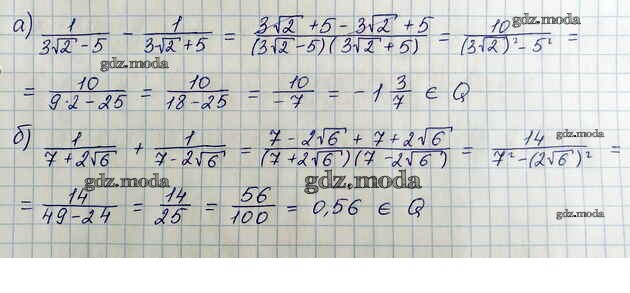 а) 1/(3√2 - 5) - 1/(3√2 + 5) = (3√2 + 5 - 3√2 + 5)/((3√2 - 5)(3√2 + 5)) = 10/((3√2)² - 5²) =
gdz.moda
gdz.moda
= 10/(9·2 - 25) = 10/(18 - 25) = 10/(-7) = -1 3/7 ∈ Q
б) 1/(7 + 2√6) + 1/(7 - 2√6) = (7 - 2√6 + 7 + 2√6)/((7 + 2√6)(7 - 2√6)) = 14/(7² - (2√6)²) =
gdz.moda
gdz.moda
gdz.moda
= 14/(49 - 24) = 14/25 = 56/100 = 0,56 ∈ Q
gdz.moda